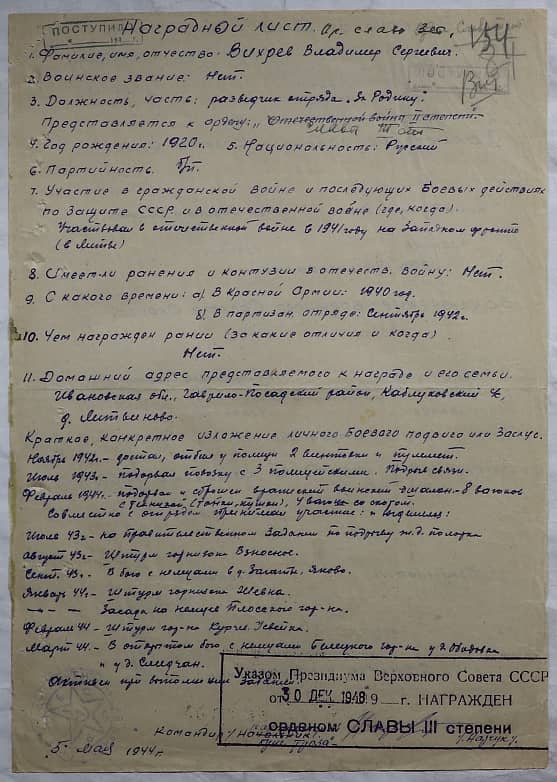 ПОСТУПИЛ
Наградной лист. Ор. слава 3 ст.
1. Фамилие, имя, отчество - Вихрев Владимир Сергеевич.
2. Воинское звание: Нет.
3. Должность, часть: разведчик отряда "За Родину".
Представляется к ордену: "Отечественной войны II степени".
Слава III
4. Год рождения: 1920 г. 5. Национальность: Русский
6. Партийность: б/п.
7. Участие в гражданской войне и последующих боевых действиях
по защите СССР и в отечественной войне (где, когда).
Участвовал в отечественной войне в 1941 году на Западном фронте
(в Литве)
8. Имеет ли ранения и контузии в отечеств. войну: Нет.
9. С какого времени: а) В Красной Армии: 1940 год.
б). В партизан. отряде: Сентябрь 1942 г.
10. Чем награжден рании (за какие отличия и когда).
Нет.
11. Домашний адрес представляемого к награде и его семьи.
Ивановская обл., Гаврило-Посадский район, Каблуковский
д. Литвиново.
Краткое, конкретное изложение личного боевого подвига или заслуг.
Ноябрь 1942 г. - достал, отбил у полиции 2 винтовки и пулемет.
Июль 1943 г. - подорвал повозку с 3 полицейскими. Подрыв связи.
Февраль 1944 г. - подорвал и сбросил вражеский воинский эшалон - 8 вагонов
4 вагона со скотом.
Совместно с отрядом принимал участие:
Июль 43 г. - на правительственном задании по подрыву ж.д. полотна
Август 43 г. - Штурм гарнизона
Сент. 43 г. - В бою с немцами в д.
Январь 44 г. - Штурм гарнизона
—"— Засада на немцев Плосского гар-на.
Февраль 44 - Штурм гар-на
Март 44. - В открытом бою с немцами гар-на у д.
и у д.
Активен при выполнении заданий
Указом Президиума Верховного Совета СССР
от 30 ДЕК 1948 г. НАГРАЖДЕН
орденом СЛАВЫ III степени
Командир
Начальник
5 Мая 1944 г.